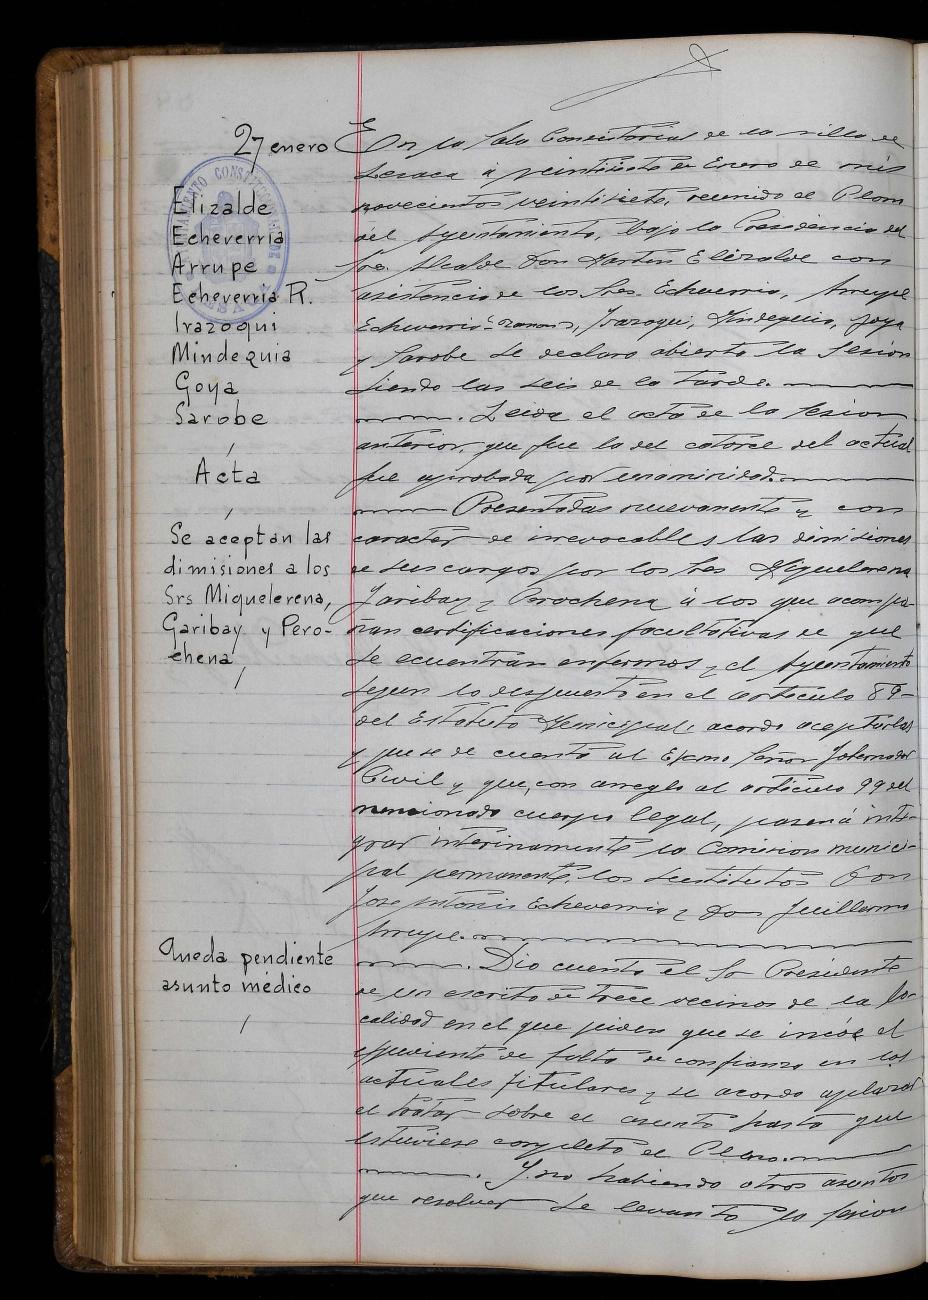 27 enero
Elizalde
Echeverria
Arrupe
Echeverria R.
Irazoqui
Mindeguia
Goya
Sarobe
Acta
Se aceptan las
dimisiones a los
Srs Miquelerena,
Garibay y Pero-
chena
Queda pendiente
asunto médico
En la Sala Consistorial de la villa de
Lesaca á veintisiete de Enero de mis
novecientos veintisiete, reunido el Pleno
del Ayuntamiento, bajo la Presidencia del
Sr. Alcalde Don Martin Elizalde con
asistencia de los Sres. Echeverria, Arrupe
Echeverria Ramon, Irazoqui, Mindeguia, Goya
y Sarobe se declaro abierta la sesion
siendo las seis de la tarde.
Leida el acta de la sesion
anterior, que fue la del catorce del actual
fue aprobada por unanimidad.
Presentadas nuevamente y con
caracter de irrevocables las dimisiones
de sus cargos por los Sres Miquelerena
Garibay y Perochena á los que acompa-
ñan certificaciones facultativas de que
se ecuentran enfermos y el Ayuntamiento
segun lo dispuesto en el articulo 89-
del Estatuto Municipal, acordo aceptarlas
y que se de cuenta al Excmo Señor Gobernador
Civil y que, con arreglo al articulo 99 del
mencionado cuerpo legal, pasen á inte-
grar interinamente la Comision munici-
pal permanente, los sustitutos Don
Jose Antonio Echeverria y Don Guillermo
Arrupe.
Dio cuenta el Sr Presidente
de un escrito de trece vecinos de la lo-
calidad en el que piden que se incoe el
expediente de falta de confianza en los
actuales titulares y se acordo aplazar
el tratar sobre el asunto hasta que
estuviese completo el Pleno.
Y no habiendo otros asuntos
que resolver se levanto la sesion